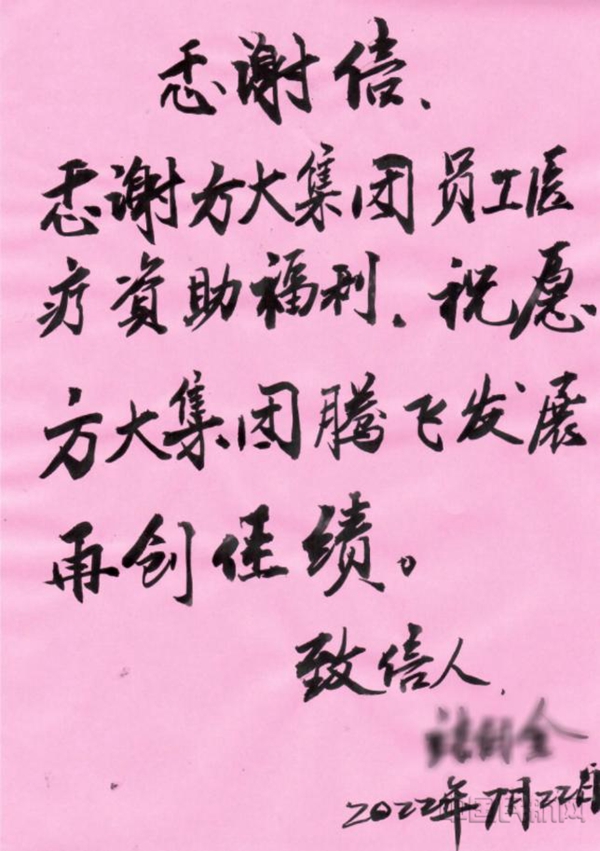 感谢信、
感谢方大集团员工医
疗资助福利、祝愿
方大集团腾飞发展
再创佳绩。
致信人、
2022年7月22日
中国民航网